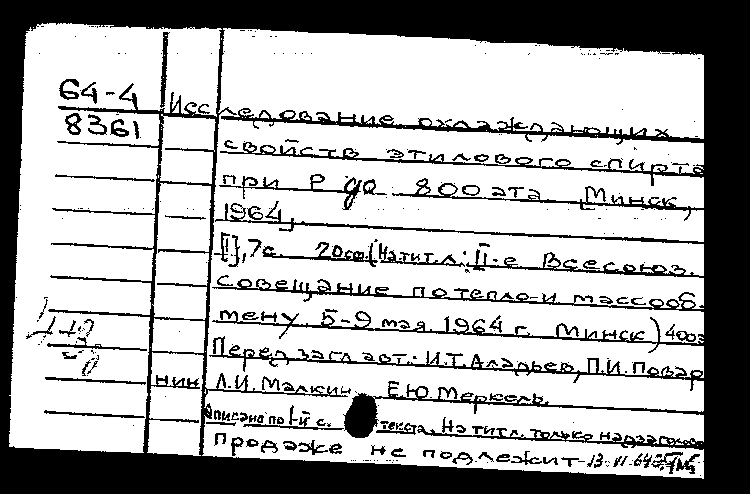 64-4
8361
Исследование охлаждающих
свойств этилового спирта
при P до 800 ата. [Минск,
1964].
[I], 7с. 20см (На тит. л.: II-е Всесоюз.
совещание по тепло-и массооб-
мену. 5-9 мая 1964 г. Минск) 400э
Перед загл авт.: И.Т. Аладьев, П.И. Повар
нин, Л.И. Малкин Е.Ю. Меркель.
Описана по 1-й с. текста. На тит. л. только надзаголово
Продаже не подлежит